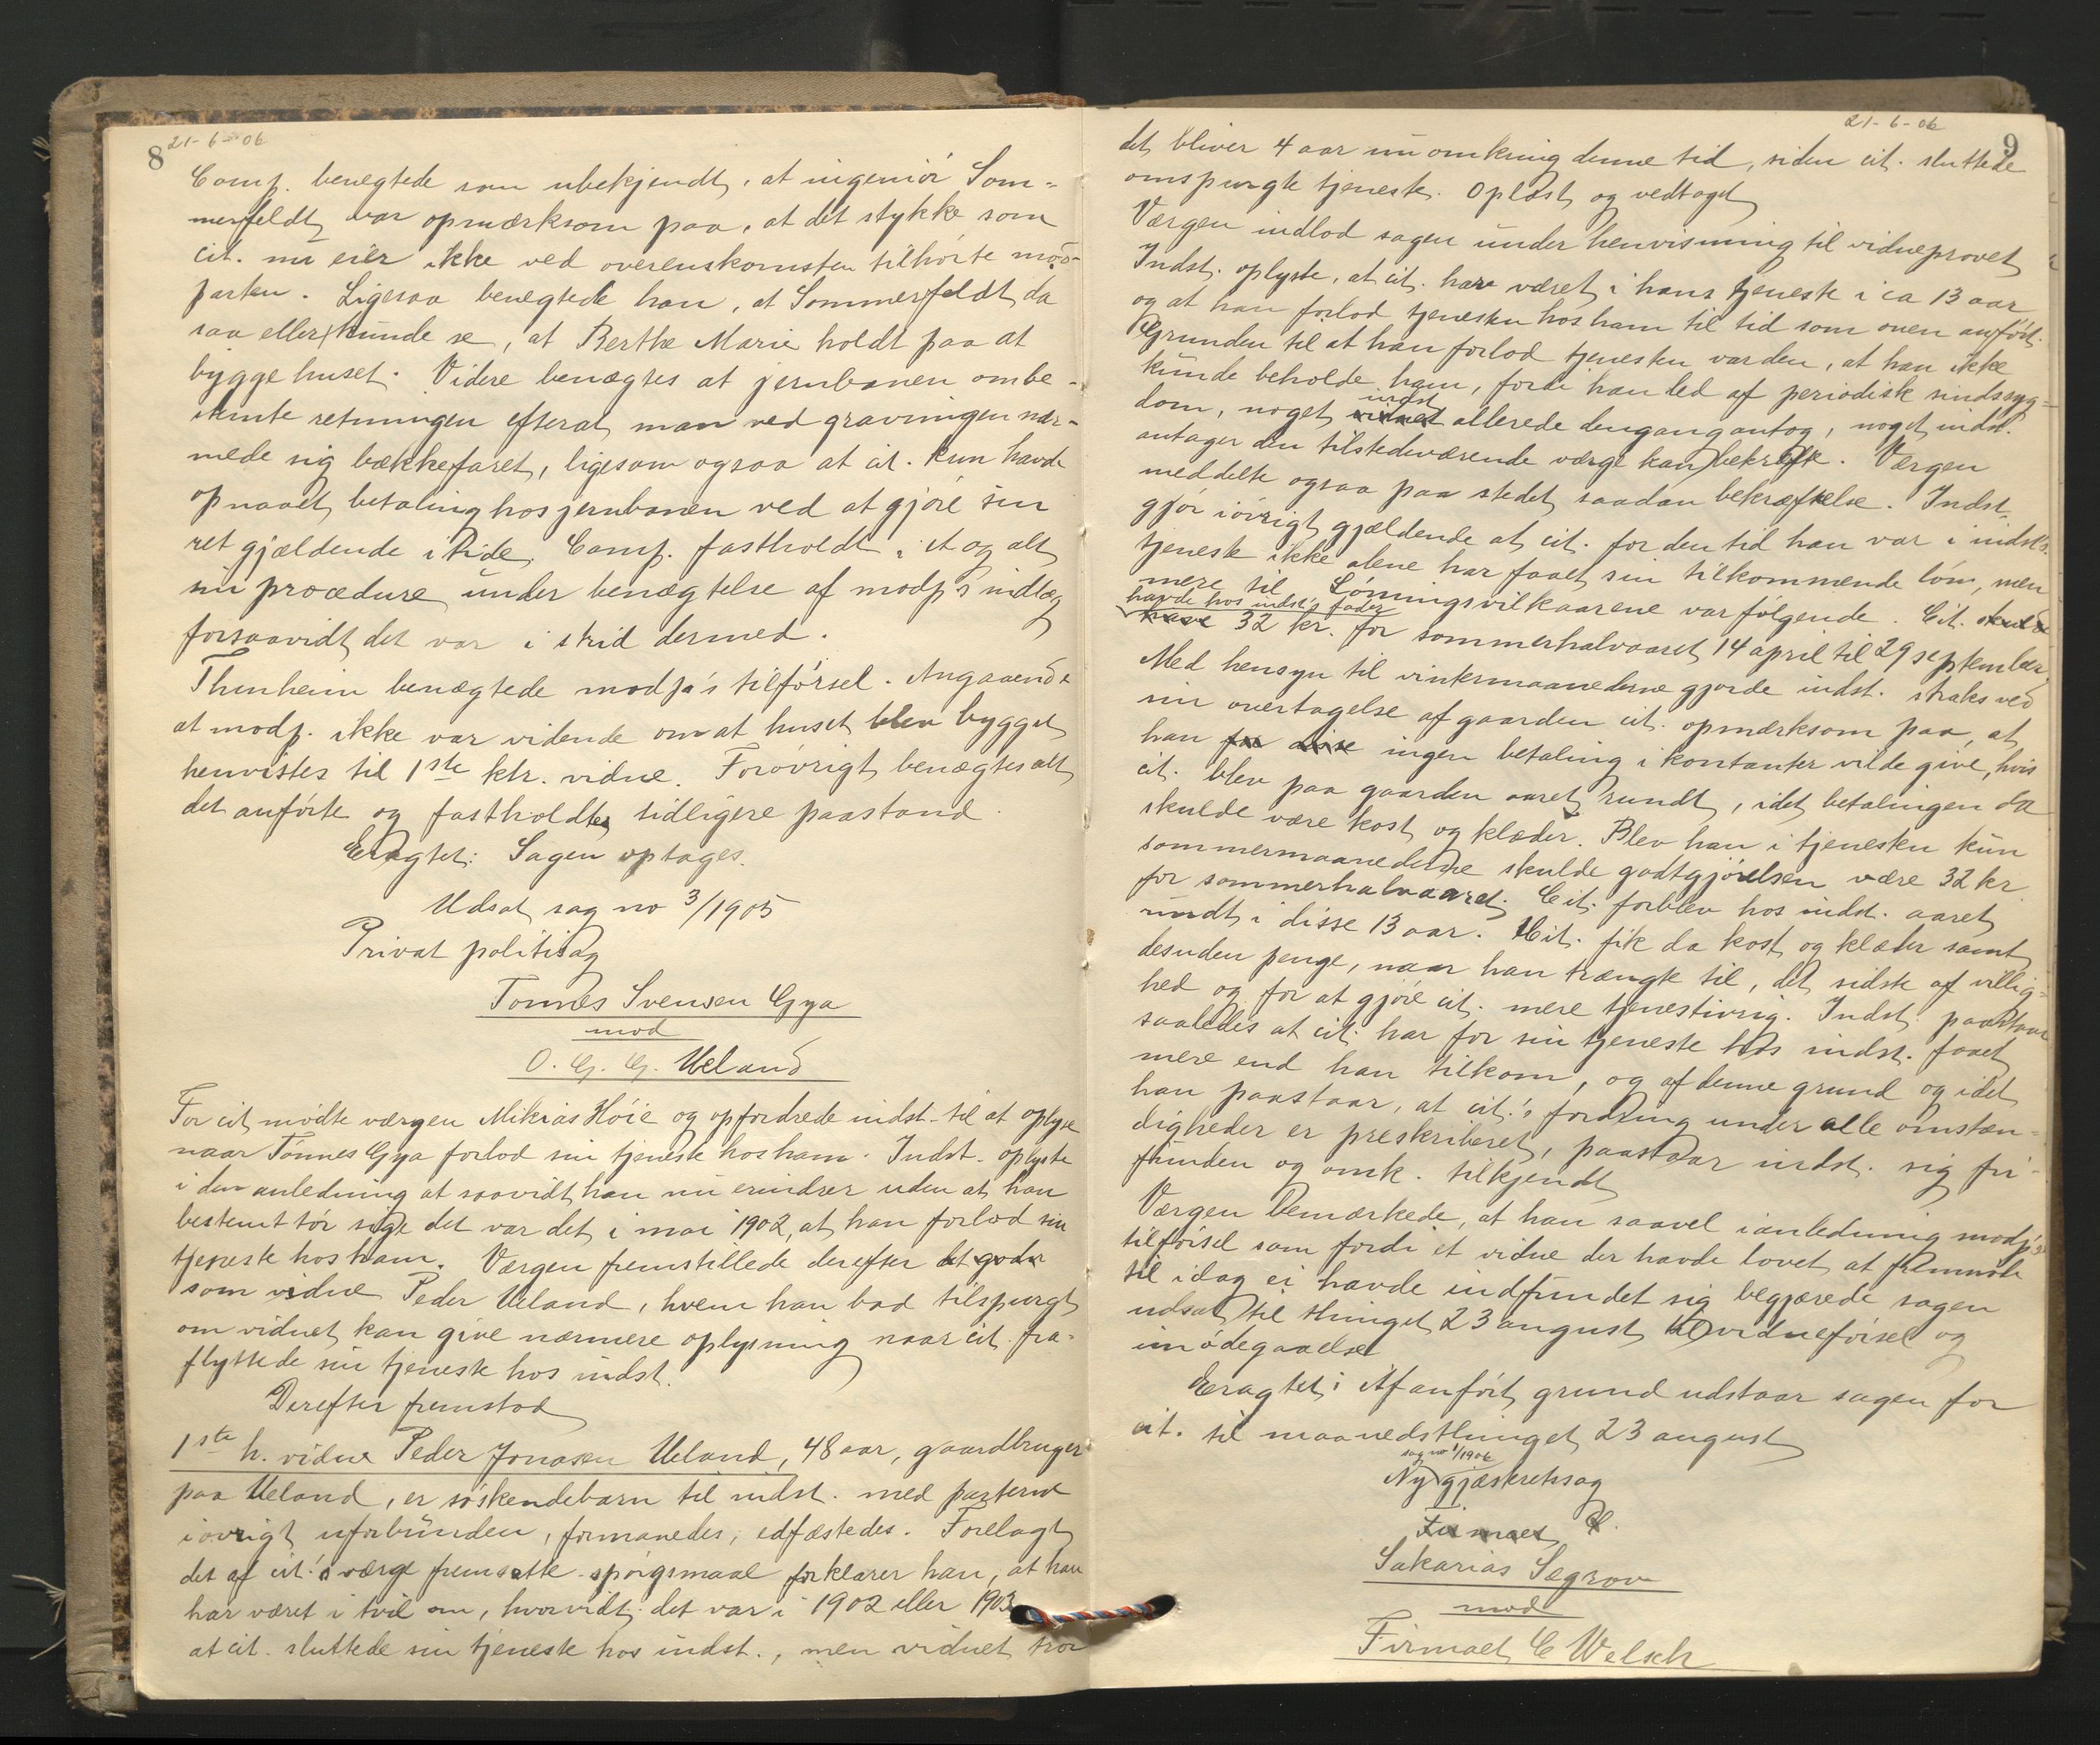 8 21-6-06
Comp. benegtede som ubekjendt, at ingeniør Som-
merfeldt var opmærksom paa, at det stykke som
cit. nu eier ikke ved overenskomsten tilhørte mod-
parten. Ligesaa benegtede han, at Sommerfeldt da
saa eller kunde se, at Berthe Marie holdt paa at
bygge huset. Videre benægtes at jernbanen ombe-
stemte retningen efterat man ved gravningen nær-
mede sig bækkefaret, ligesom ogsaa at cit. kun havde
opnaaet betaling hos jernbanen ved at gjøre sin
ret gjældende i tide. Comp. fastholdt i et og alt
sin procedure under benægtelse af modp's indlæg
forsaavidt det var i strid dermed.
Thenheim benægtede modp's tilførsel. Angaaende
at modp. ikke var vidende om at huset blev bygget
henvistes til 1ste ktr. vidne. Forøvrigt benægtes alt
det anførte og fastholdtes tidligere paastand.
Eragtet: Sagen optages.
Udsat sag no 3/1905
Privat politisag
Tønnes Svensen Gya
mod
O. G. G. Ueland
For cit. mødte værgen Mikias Høie og opfordrede indst. til at oplyse
naar Tønnes Gya forlod sin tjeneste hos ham. Indst. oplyste
i den anledning at saavidt han nu erindrer uden at han
bestemt tør sige det var det i mai 1902, at han forlod sin
tjeneste hos ham. Værgen fremstillede derefter
som vidne Peder Ueland, hvem han bad tilspurgt
om vidnet kan give nærmere oplysning naar cit. fra-
flyttede sin tjeneste hos indst.
Derefter fremstod
1ste h. vidne Peder Jonasen Ueland, 48 aar, gaardbruger
paa Ueland, er søskendebarn til indst. med parterne
iøvrigt uforbunden, formanedes, edfæstedes. Forelagt
det af cit.'s værge fremsatte spørgsmaal forklarer han, at han
har været i tvil om, hvorvidt det var i 1902 eller 1903
at cit. sluttede sin tjeneste hos indst., men vidnet tror
21-6-06 9
det bliver 4 aar nu omkring denne tid, siden cit. sluttede
omspurgte tjeneste. Oplæst og vedtaget
Værgen indlod sagen under henvisning til vidneprovet
Indst. oplyste, at cit. har været i hans tjeneste i ca 13 aar
og at han forlod tjenesten hos ham til tid som oven anført.
Grunden til at han forlod tjenesten var den, at han ikke
kunde beholde ham, fordi han led af periodisk sindssyg-
dom, noget vidnet indst allerede dengang antog, noget indst.
antager den tilstedeværende værge kan bekræfte. Værgen
meddelte ogsaa paa stedet saadan bekræftelse. Indst.
gjør iøvrigt gjældende at cit. for den tid han var i indst's
tjeneste ikke alene har faaet sin tilkommende løn, men
mere til. Lønningsvilkaarene var følgende. Cit. skulde
havde hos indst's fader
have 32 kr. for sommerhalvaaret 14 april til 29 september.
Med hensyn til vintermaanederne gjorde indst. straks ved
sin overtagelse af gaarden cit. opmærksom paa, at
han ingen betaling i kontanter vilde give, hvis
cit. blev paa gaarden aaret rundt, idet betalingen da
skulde være kost og klæder. Blev han i tjenesten kun
sommermaanederne skulde godtgjørelsen være 32 kr
for sommerhalvaaret. Cit. forblev hos indst. aaret
rundt i disse 13 aar. Cit. fik da kost og klæder samt
desuden penge, naar han trængte til, det sidste af villig-
hed og for at gjøre cit. mere tjenestivrig. Indst. paastaar
saaledes at cit. har for sin tjeneste hos indst. faaet
mere end han tilkom, og af denne grund og idet
han paastaar, at cit.'s fordring under alle omstæn-
digheder er preskriberet, paastaar indst. sig fri-
funden og omk. tilkjendt
Værgen bemærkede, at han saavel i anledning modp's
tilførsel som fordi et vidne der havde lovet at fremmøde
til idag ei havde indfundet sig begjærede sagen
udsat til thinget 23 august til vidneførsel og
imødegaaelse
Eragtet: Af anført grund udstaar sagen for
cit. til maanedsthinget 23 august
sag no 1/1906
Ny gjæsteretssag
Firmaet
Sakarias Segrov
mod
Firmaet C Welsch